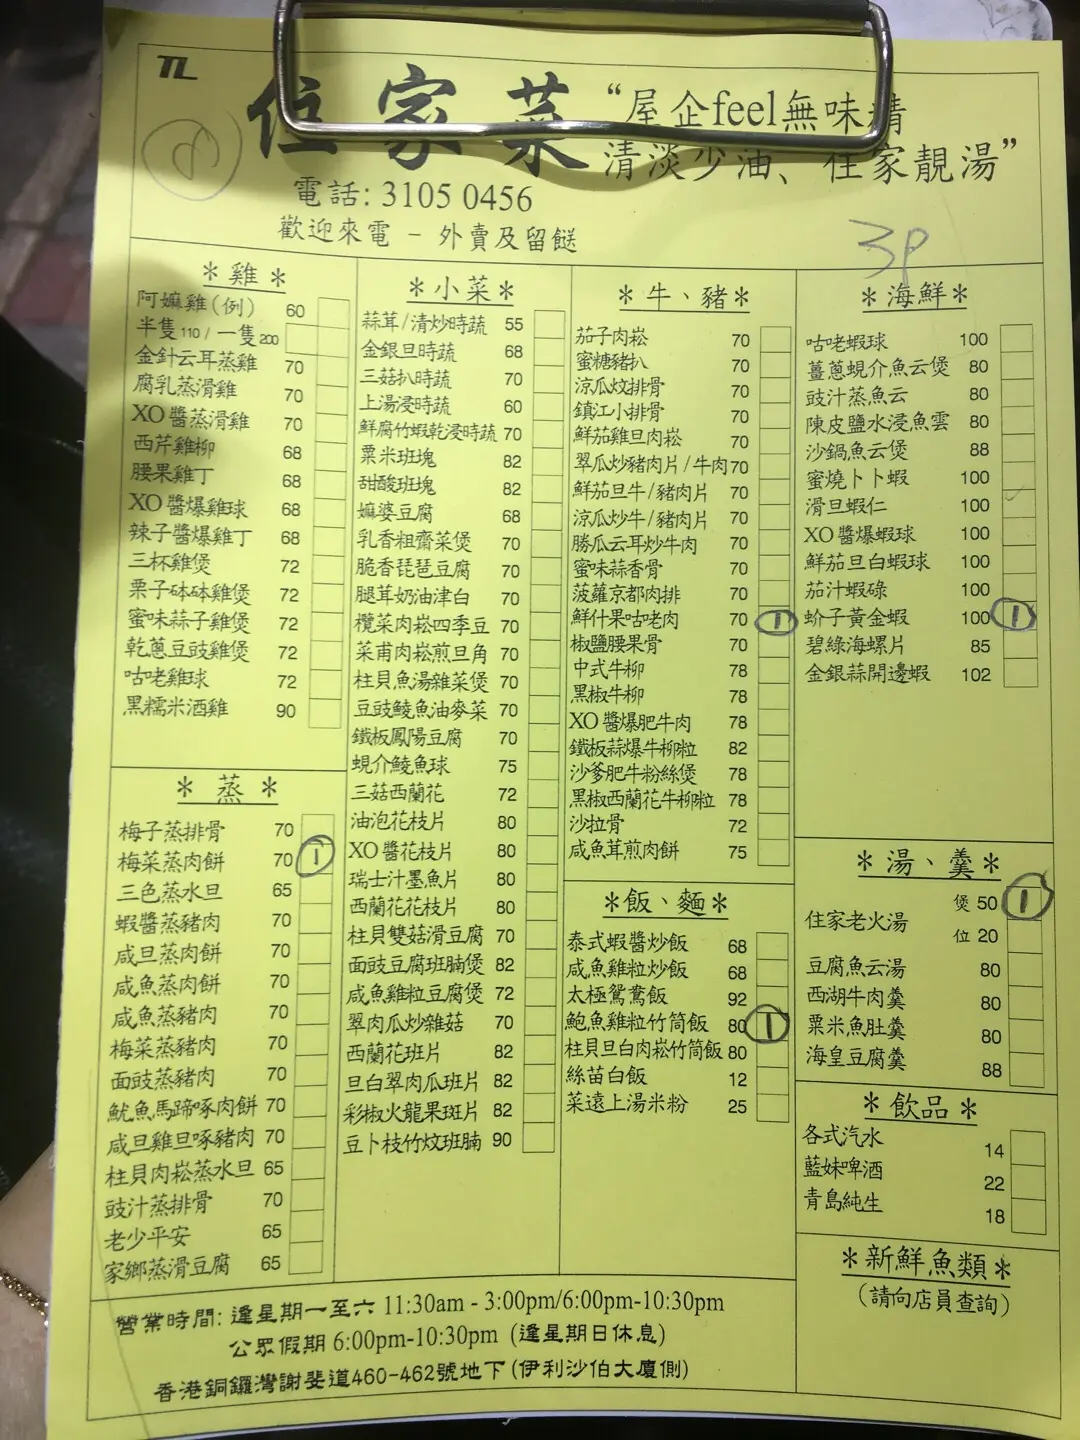 TL
住家菜
“屋企feel無味精
清淡少油、住家靚湯”
電話: 3105 0456
歡迎來電 - 外賣及留餸
3P
* 雞 *
阿嫲雞(例) 60
半隻110/一隻200
金針云耳蒸雞 70
腐乳蒸滑雞 70
XO醬蒸滑雞 70
西芹雞柳 68
腰果雞丁 68
XO醬爆雞球 68
辣子醬爆雞丁 68
三杯雞煲 72
栗子砵砵雞煲 72
蜜味蒜子雞煲 72
乾蔥豆豉雞煲 72
咕咾雞球 72
黑糯米酒雞 90
* 蒸 *
梅子蒸排骨 70
梅菜蒸肉餅 70 1
三色蒸水旦 65
蝦醬蒸豬肉 70
咸旦蒸肉餅 70
咸魚蒸肉餅 70
咸魚蒸豬肉 70
梅菜蒸豬肉 70
面豉蒸豬肉 70
魷魚馬蹄啄肉餅 70
咸旦雞旦啄豬肉 70
柱貝肉崧蒸水旦 65
豉汁蒸排骨 70
老少平安 65
家鄉蒸滑豆腐 65
* 小菜 *
蒜茸/清炒時蔬 55
金銀旦時蔬 68
三菇扒時蔬 70
上湯浸時蔬 60
鮮腐竹蝦乾浸時蔬 70
粟米班塊 82
甜酸班塊 82
嫲婆豆腐 68
乳香粗齋菜煲 70
脆香琵琶豆腐 70
腿茸奶油津白 70
欖菜肉崧四季豆 70
菜甫肉崧煎旦角 70
柱貝魚湯雜菜煲 70
豆豉鯪魚油麥菜 70
鐵板鳳陽豆腐 70
蜆介鯪魚球 75
三菇西蘭花 72
油泡花枝片 80
XO醬花枝片 80
瑞士汁墨魚片 80
西蘭花花枝片 80
柱貝雙菇滑豆腐 70
面豉豆腐班腩煲 82
咸魚雞粒豆腐煲 72
翠肉瓜炒雜菇 70
西蘭花班片 82
旦白翠肉瓜班片 82
彩椒火龍果斑片 82
豆卜枝竹炆班腩 90
* 牛、豬 *
茄子肉崧 70
蜜糖豬扒 70
涼瓜炆排骨 70
鎮江小排骨 70
鮮茄雞旦肉崧 70
翠瓜炒豬肉片/牛肉 70
鮮茄旦牛/豬肉片 70
涼瓜炒牛/豬肉片 70
勝瓜云耳炒牛肉 70
蜜味蒜香骨 70
菠蘿京都肉排 70
鮮什果咕老肉 70 1
椒鹽腰果骨 70
中式牛柳 78
黑椒牛柳 78
XO醬爆肥牛肉 78
鐵板蒜爆牛柳粒 82
沙爹肥牛粉絲煲 78
黑椒西蘭花牛柳粒 78
沙拉骨 72
咸魚茸煎肉餅 75
*飯、麵*
泰式蝦醬炒飯 68
咸魚雞粒炒飯 68
太極鴛鴦飯 92
鮑魚雞粒竹筒飯 80 1
柱貝旦白肉崧竹筒飯 80
絲苗白飯 12
菜遠上湯米粉 25
* 海鮮 *
咕咾蝦球 100
薑蔥蜆介魚云煲 80
豉汁蒸魚云 80
陳皮鹽水浸魚雲 80
沙鍋魚云煲 88
蜜燒卜卜蝦 100
滑旦蝦仁 100
XO醬爆蝦球 100
鮮茄旦白蝦球 100
茄汁蝦碌 100
蚧子黃金蝦 100 1
碧綠海螺片 85
金銀蒜開邊蝦 102
* 湯、羹 *
煲 50 1
住家老火湯
位 20
豆腐魚云湯 80
西湖牛肉羹 80
粟米魚肚羹 80
海皇豆腐羹 88
* 飲品 *
各式汽水 14
藍妹啤酒 22
青島純生 18
* 新鮮魚類 *
(請向店員查詢)
營業時間: 逢星期一至六 11:30am - 3:00pm/6:00pm-10:30pm
公眾假期 6:00pm-10:30pm (逢星期日休息)
香港銅鑼灣謝斐道460-462號地下(伊利沙伯大廈側)